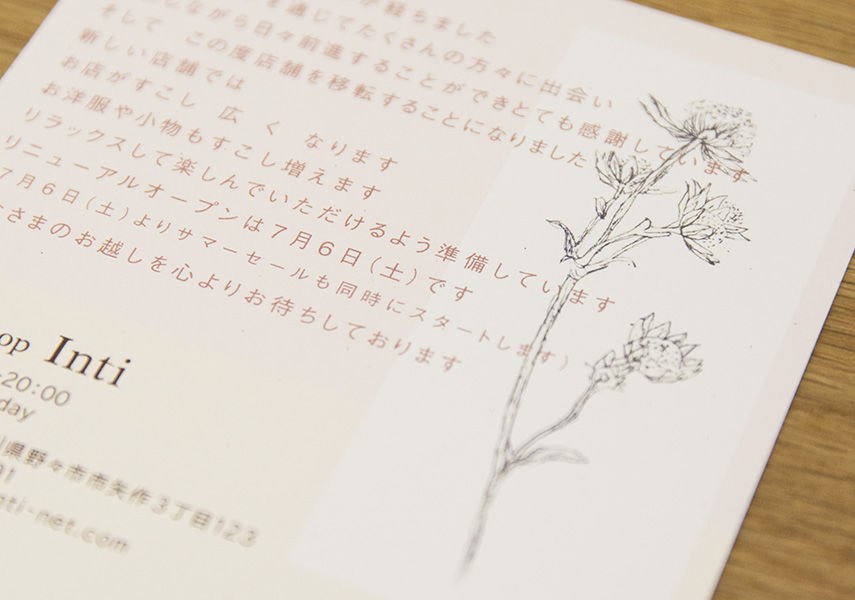 が経ちました
を通じてたくさんの方々に出会い
しながら日々前進することができとても感謝しています
そして この度店舗を移転することになりました
新しい店舗では
お店がすこし 広 く なります
お洋服や小物もすこし増えます
リラックスして楽しんでいただけるよう準備しています
リニューアルオープンは7月6日(土)です
7月6日(土)よりサマーセールも同時にスタートします)
さまのお越しを心よりお待ちしております
op Inti
-20:00
day
県野々市市矢作3丁目123
91
nti-net.com